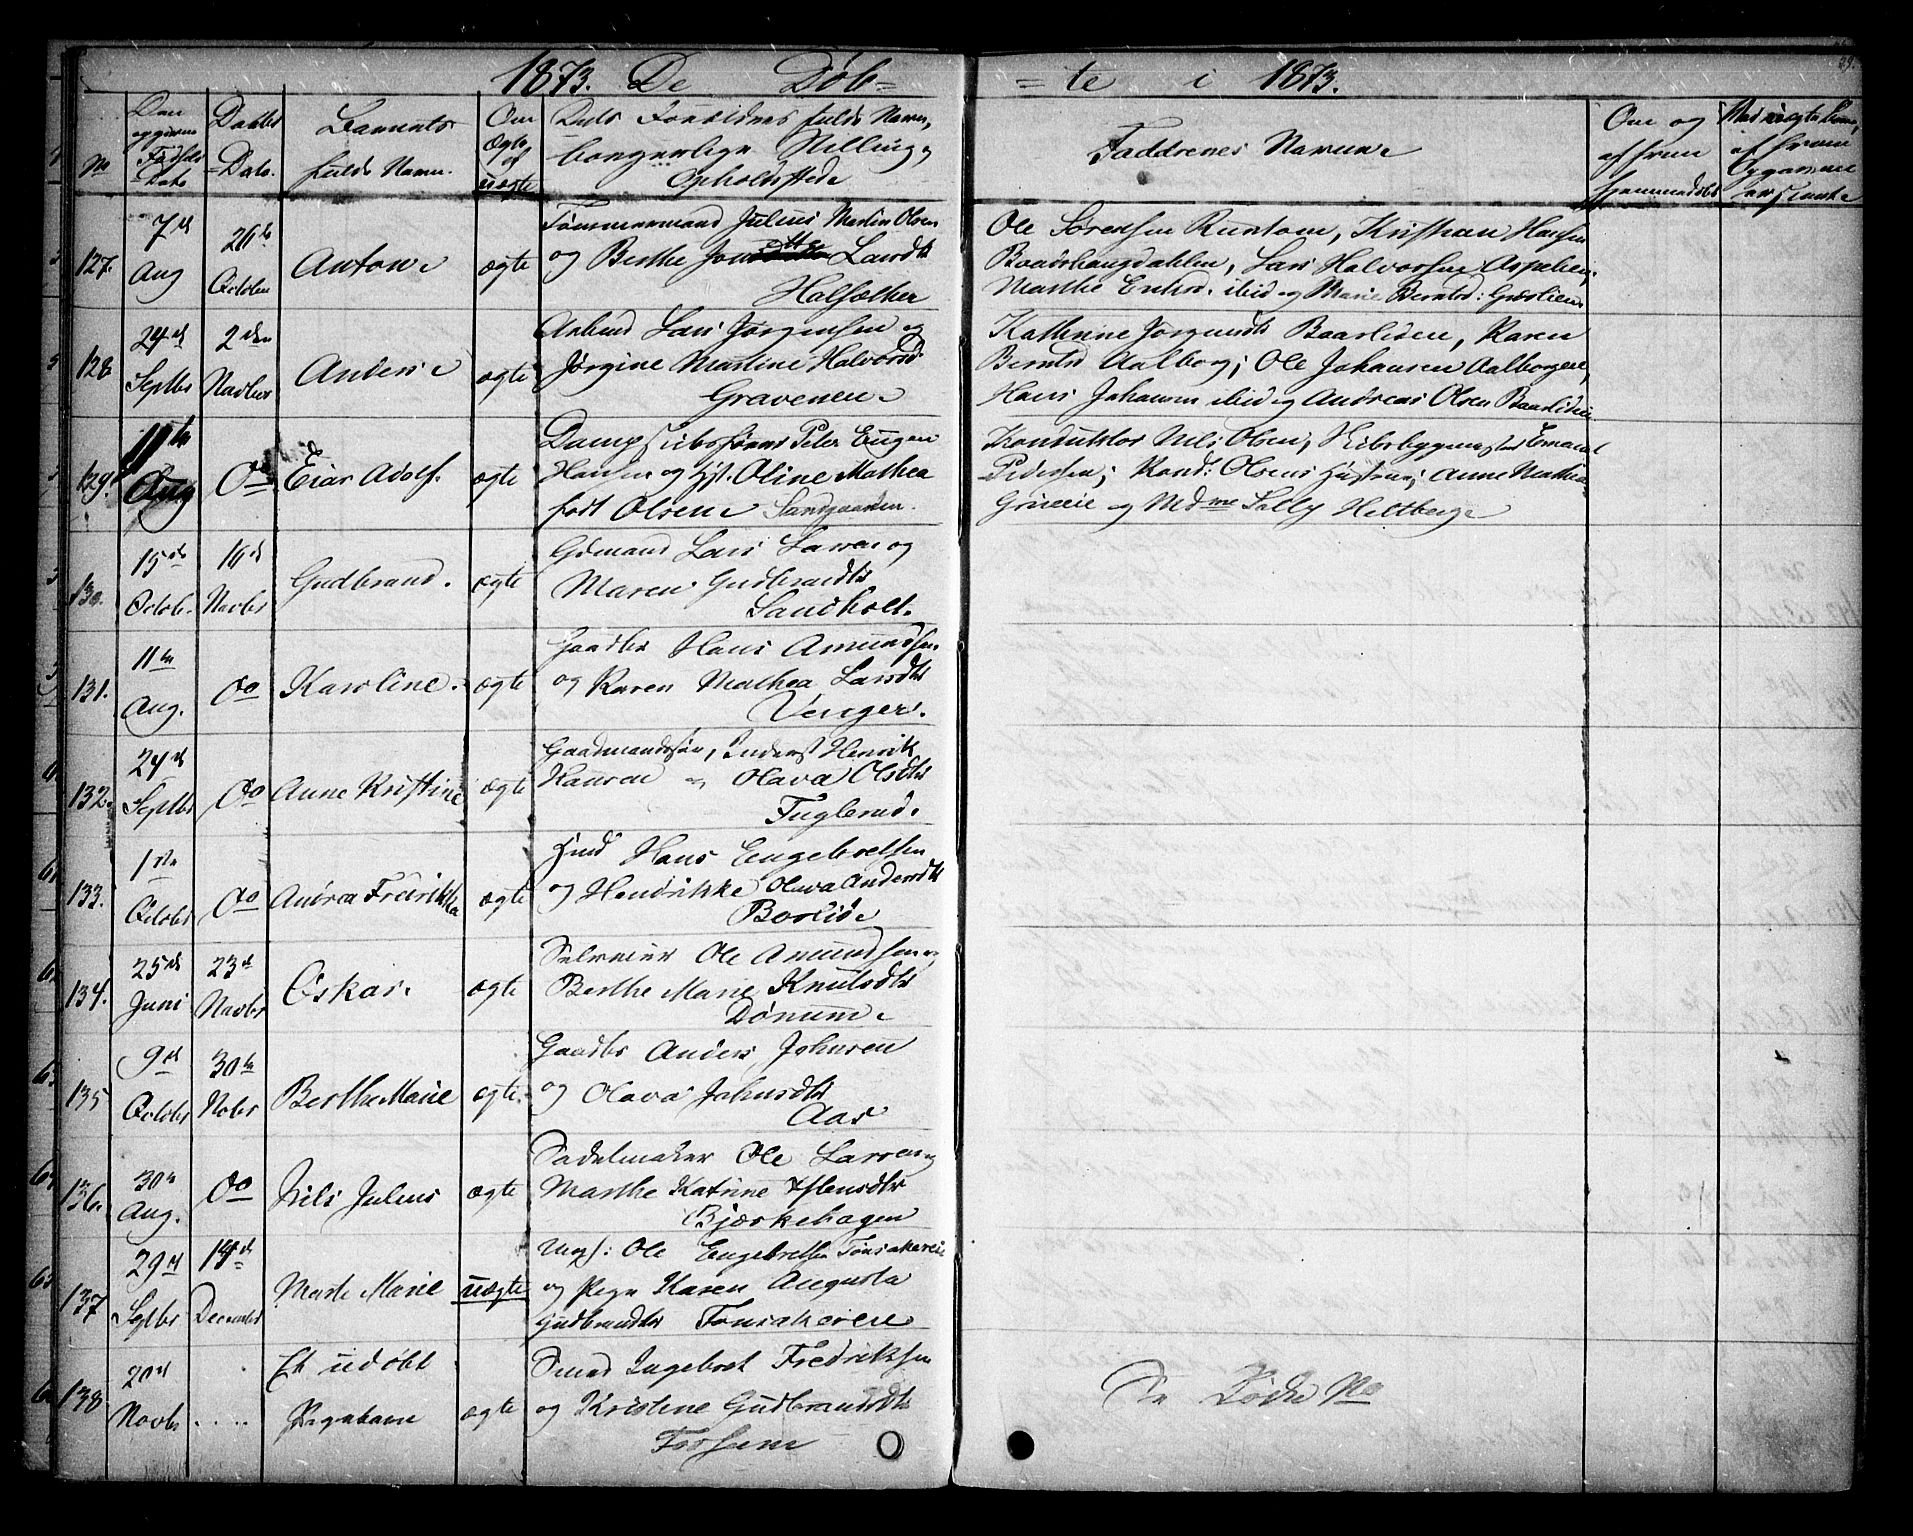 1873. De Døb= =te i 1873.
29.
No
Den opgivne Fødsels =Dato
Daabs =Dato.
Barnets fulde Navn.
Om Ægte el uægte
Dets Forældres fulde Navn, borgerlige Stilling, Opholdssted
Faddrenes Navne
Om og af hvem hjemmedøbt
127.
7de Aug
26de October
Anton
ægte
Tømmermand Julius Martin Olsen
og Berthe Larsdtr
Halsæther
Ole Sørensen Runtom, Kristian Hansen
Baadshaugdahlen, Lars Halvorsen Aspelien,
Marthe Eriksd. ibid og Marie Berntsd: Græslien
128
24de Septbr
2den Novbr
Anders
ægte
Arbmd Lars Jørgensen og
Jørgine Martine Halvorsd.
Gravenen
Kathrine Jørgensdtr Baarliden, Karen
Berntsd Aalborg; Ole Johansen Aalborgeie,
Hans Johansen ibid og Andreas Olsen Baarlideie
129.
11te Aug
Do
Einar Adolf.
ægte
Dampskibsfører Peter Eugen
Hansen og Hst. Oline Mathea
født Olsen Sandgaarden.
Konduktør Nils Olsen, Skibsbygmester Emanuel
Pedersen; Kond: Olsens Hustru; Anne Mathea
og Mdme Sally Heltberg
130.
15de Octob.
16de Novbr
Gudbrand.
ægte
Gdmand Lars Larsen og
Maren Gudbrandsdtr
Sandholt.
131.
11te Aug.
Do
Karoline.
ægte
Gaardbr Hans Amundsen
og Karen Mathea Larsdtr
Venger.
132.
24de Septbr
Do
Anne Kristine
ægte
Gaardmandssøn, Inderst Henrik
Hansen og Olava Olsdtr
Fuglerud.
133.
1ste Octobr
Do
Andrea Fredrikka
ægte
Hmd Hans Engebretsen
og Hendrikke Olava Andersdtr
Borlid
134.
25de Juni
23de Novbr
Oskar.
ægte
Selveier Ole Amundsen og
Berthe Marie Knutsdtr
Dønum
135
9de Octobr
30te Nobr
Berthe Marie
ægte.
Gaardbr Anders Johnsen
og Olava Johnsdtr
Aas
136.
30te Aug.
Do
Nils Julius
ægte
Sadelmaker Ole Larsen og
Marthe Katrine
Bjerkehagen
137
29de Septbr
14de December
Marte Marie
uægte
Ungk: Ole Engebretsen Tonsakereie
og Pige Karen Augusta
Gudbrandsdtr Tonsakereie
138
20de Novbr
. . . .
Et udøbt
Pigebarn
ægte
Smed Ingebret Fredriksen
og Kristine Gudbrandsdtr
Fossum
Se Døde No